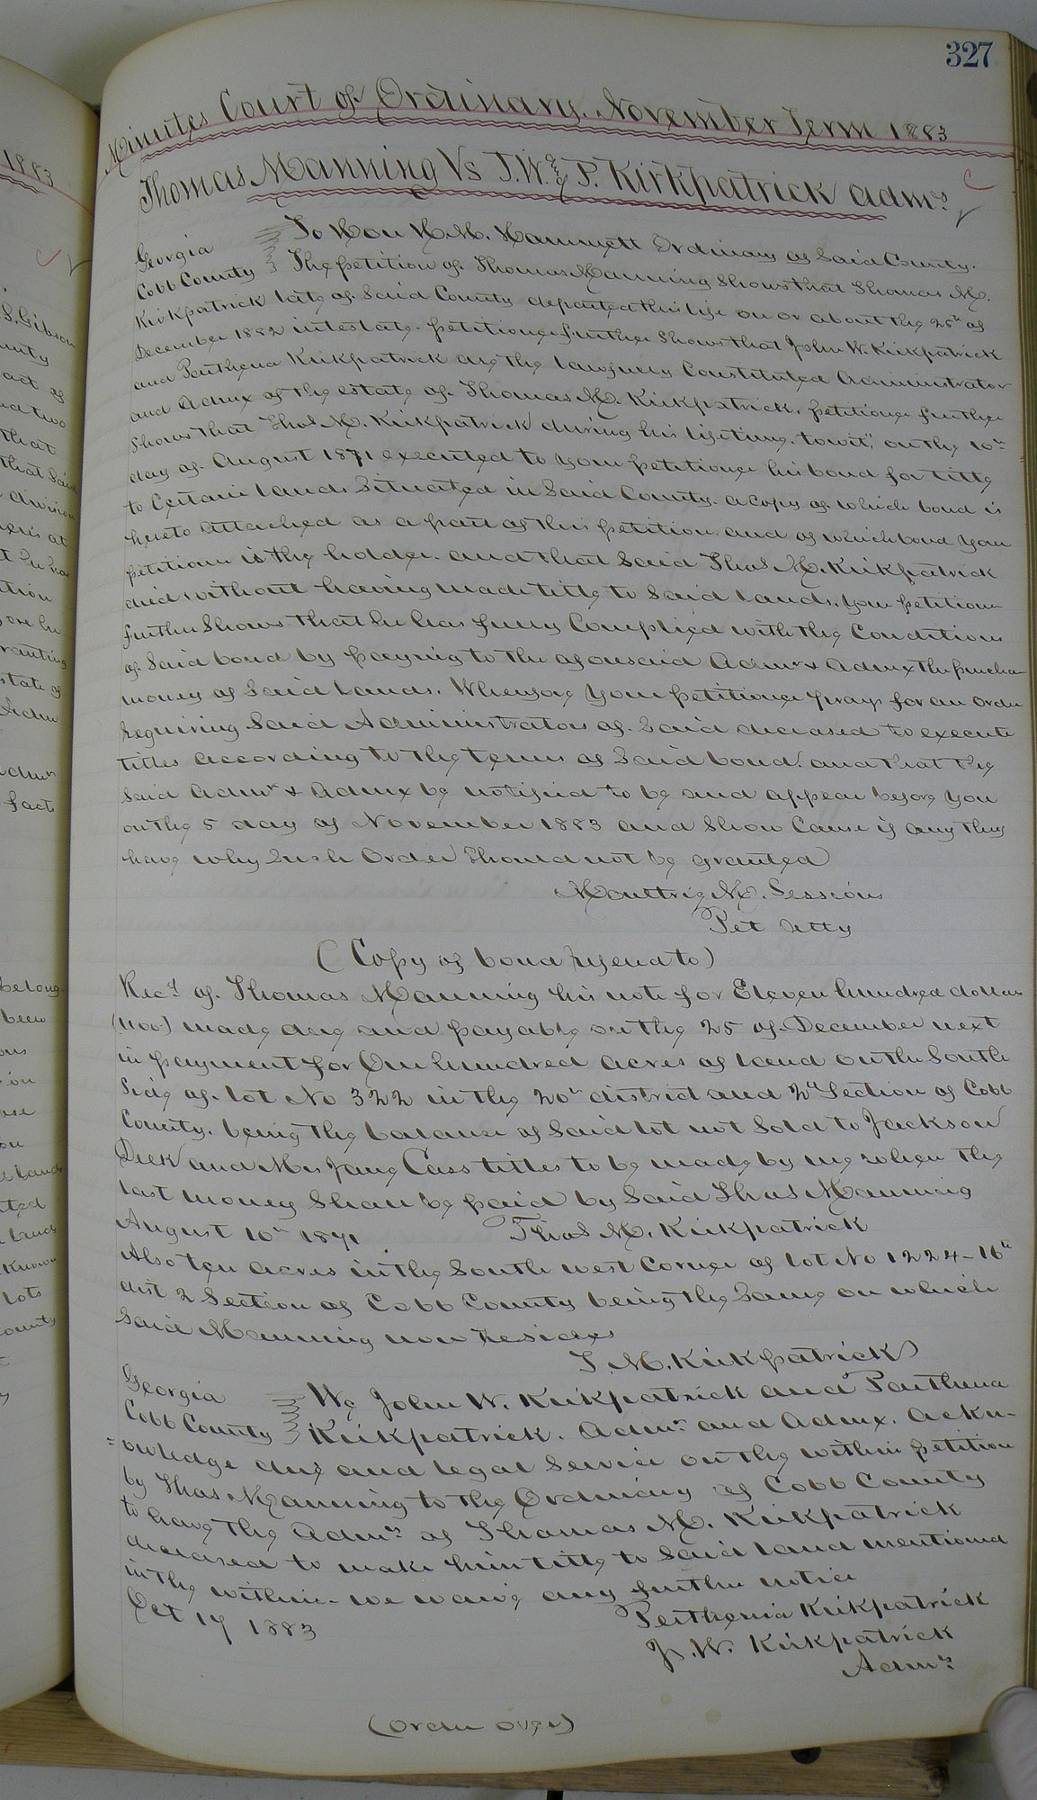 327
Minutes Court of Ordinary, November Term 1883
Thomas Manning Vs J. W. & P. Kirkpatrick admrs
Georgia
Cobb County
To Hon H. M. Hammett Ordinary of Said County.
The petition of Thomas Manning Shows that Thomas M.
Kirkpatrick late of Said County departed this life on or about the 25th of
December 1882 intestate. petitioner further Shows that John W. Kirkpatrick
and Parthena Kirkpatrick are the lawfully Constituted Administrator
and Admrx of the estate of Thomas M. Kirkpatrick. petitioner further
Shows that Thos M. Kirkpatrick during his lifetime. to wit; on the 10th
day of August 1871 executed to your petitioner his bond for title
to Certain lands Situated in Said County. a Copy of which bond is
hereto attached as a part of this petition and of which bond your
petitioner is the holder. and that Said Thos M. Kirkpatrick
died without having made title to Said lands. Your petitioner
further Shows that he has fully Complied with the Conditions
of Said bond by paying to the aforesaid Admr & Admrx the purchase
money of Said lands. Wherefore Your petitioner prays for an order
requiring Said Administrators of Said deceased to execute
titles according to the terms of Said bond. and that the
Said Admr & Admrx be notified to be and appear before You
on the 5 day of November 1883 and Show Cause if any they
have why Such Order Should not be granted
M. Sessions
Pet Atty
(Copy of bond )
Recd of Thomas Manning his note for Eleven hundred dollars
(1100) made due and payable on the 25 of December next
in payment for One hundred acres of land on the South
Side of lot No 322 in the 20th district and 2nd Section of Cobb
County. being the balance of Said lot not Sold to Jackson
and Mrs Jane Cass titles to be made by me when the
last money Shall be paid by Said Thos Manning
August 10th 1871 Thos M. Kirkpatrick
Also ten acres in the South west Corner of lot No 1224-16th
dist 2 Section of Cobb County being the Same on which
Said Manning now resides
T. M. Kirkpatrick
Georgia
Cobb County
We John W. Kirkpatrick and Parthena
Kirkpatrick. Admr. and Admrx. ackn-
=owledge due and legal Service on the within petition
by Thos Manning to the Ordinary of Cobb County
to have the Admrs of Thomas M. Kirkpatrick
deceased to make him title to Said land mentioned
in the within. we waive any further notice
Oct 17 1883
Perthenia Kirkpatrick
J. W. Kirkpatrick
Admrs
(Order over)